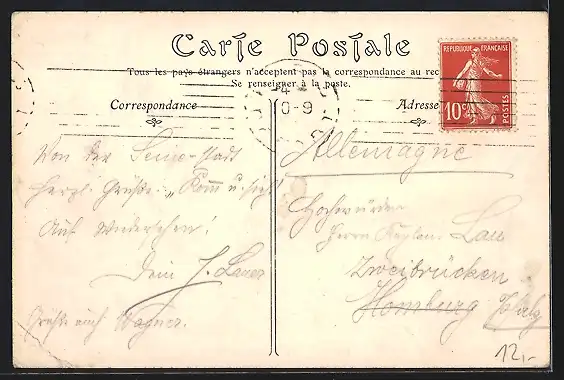 Carte Postale
Tous les pays étrangers n'acceptent pas la correspondance au rec
Se renseigner à la poste.
RÉPUBLIQUE FRANÇAISE
10c
POSTES
4
0-9
Correspondance
Adresse
Von der Seine-Stadt
herzl. Grüße. „Komm u. sieh!
Auf Wiedersehen!
Dein J. Lauer
Grüße auch Wagner.
Allemagne
Hochwürden
Herrn Kaplan
Zweibrücken
Homburg Pfalz
12,-